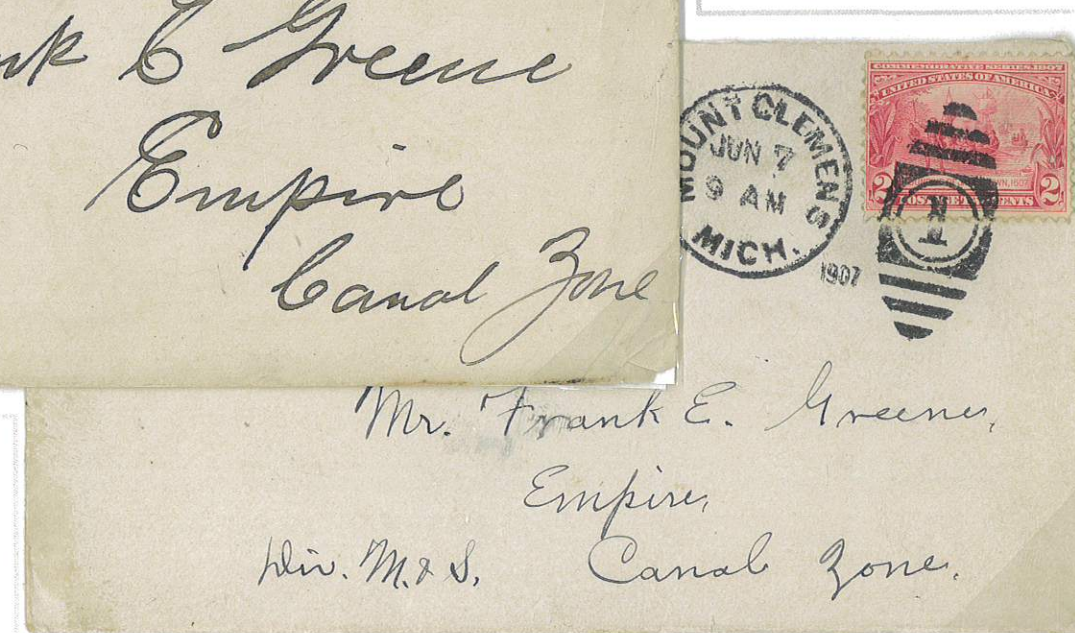 E Greene
Empire
Canal Zone
MOUNT CLEMENS
JUN 7
9 AM
MICH.
1907
COMMEMORATIVE SERIES 1907
UNITED STATES OF AMERICA
2 2
POSTAGE CENTS
1
Mr. Frank E. Greene,
Empire,
Div. M. & S. Canal Zone.